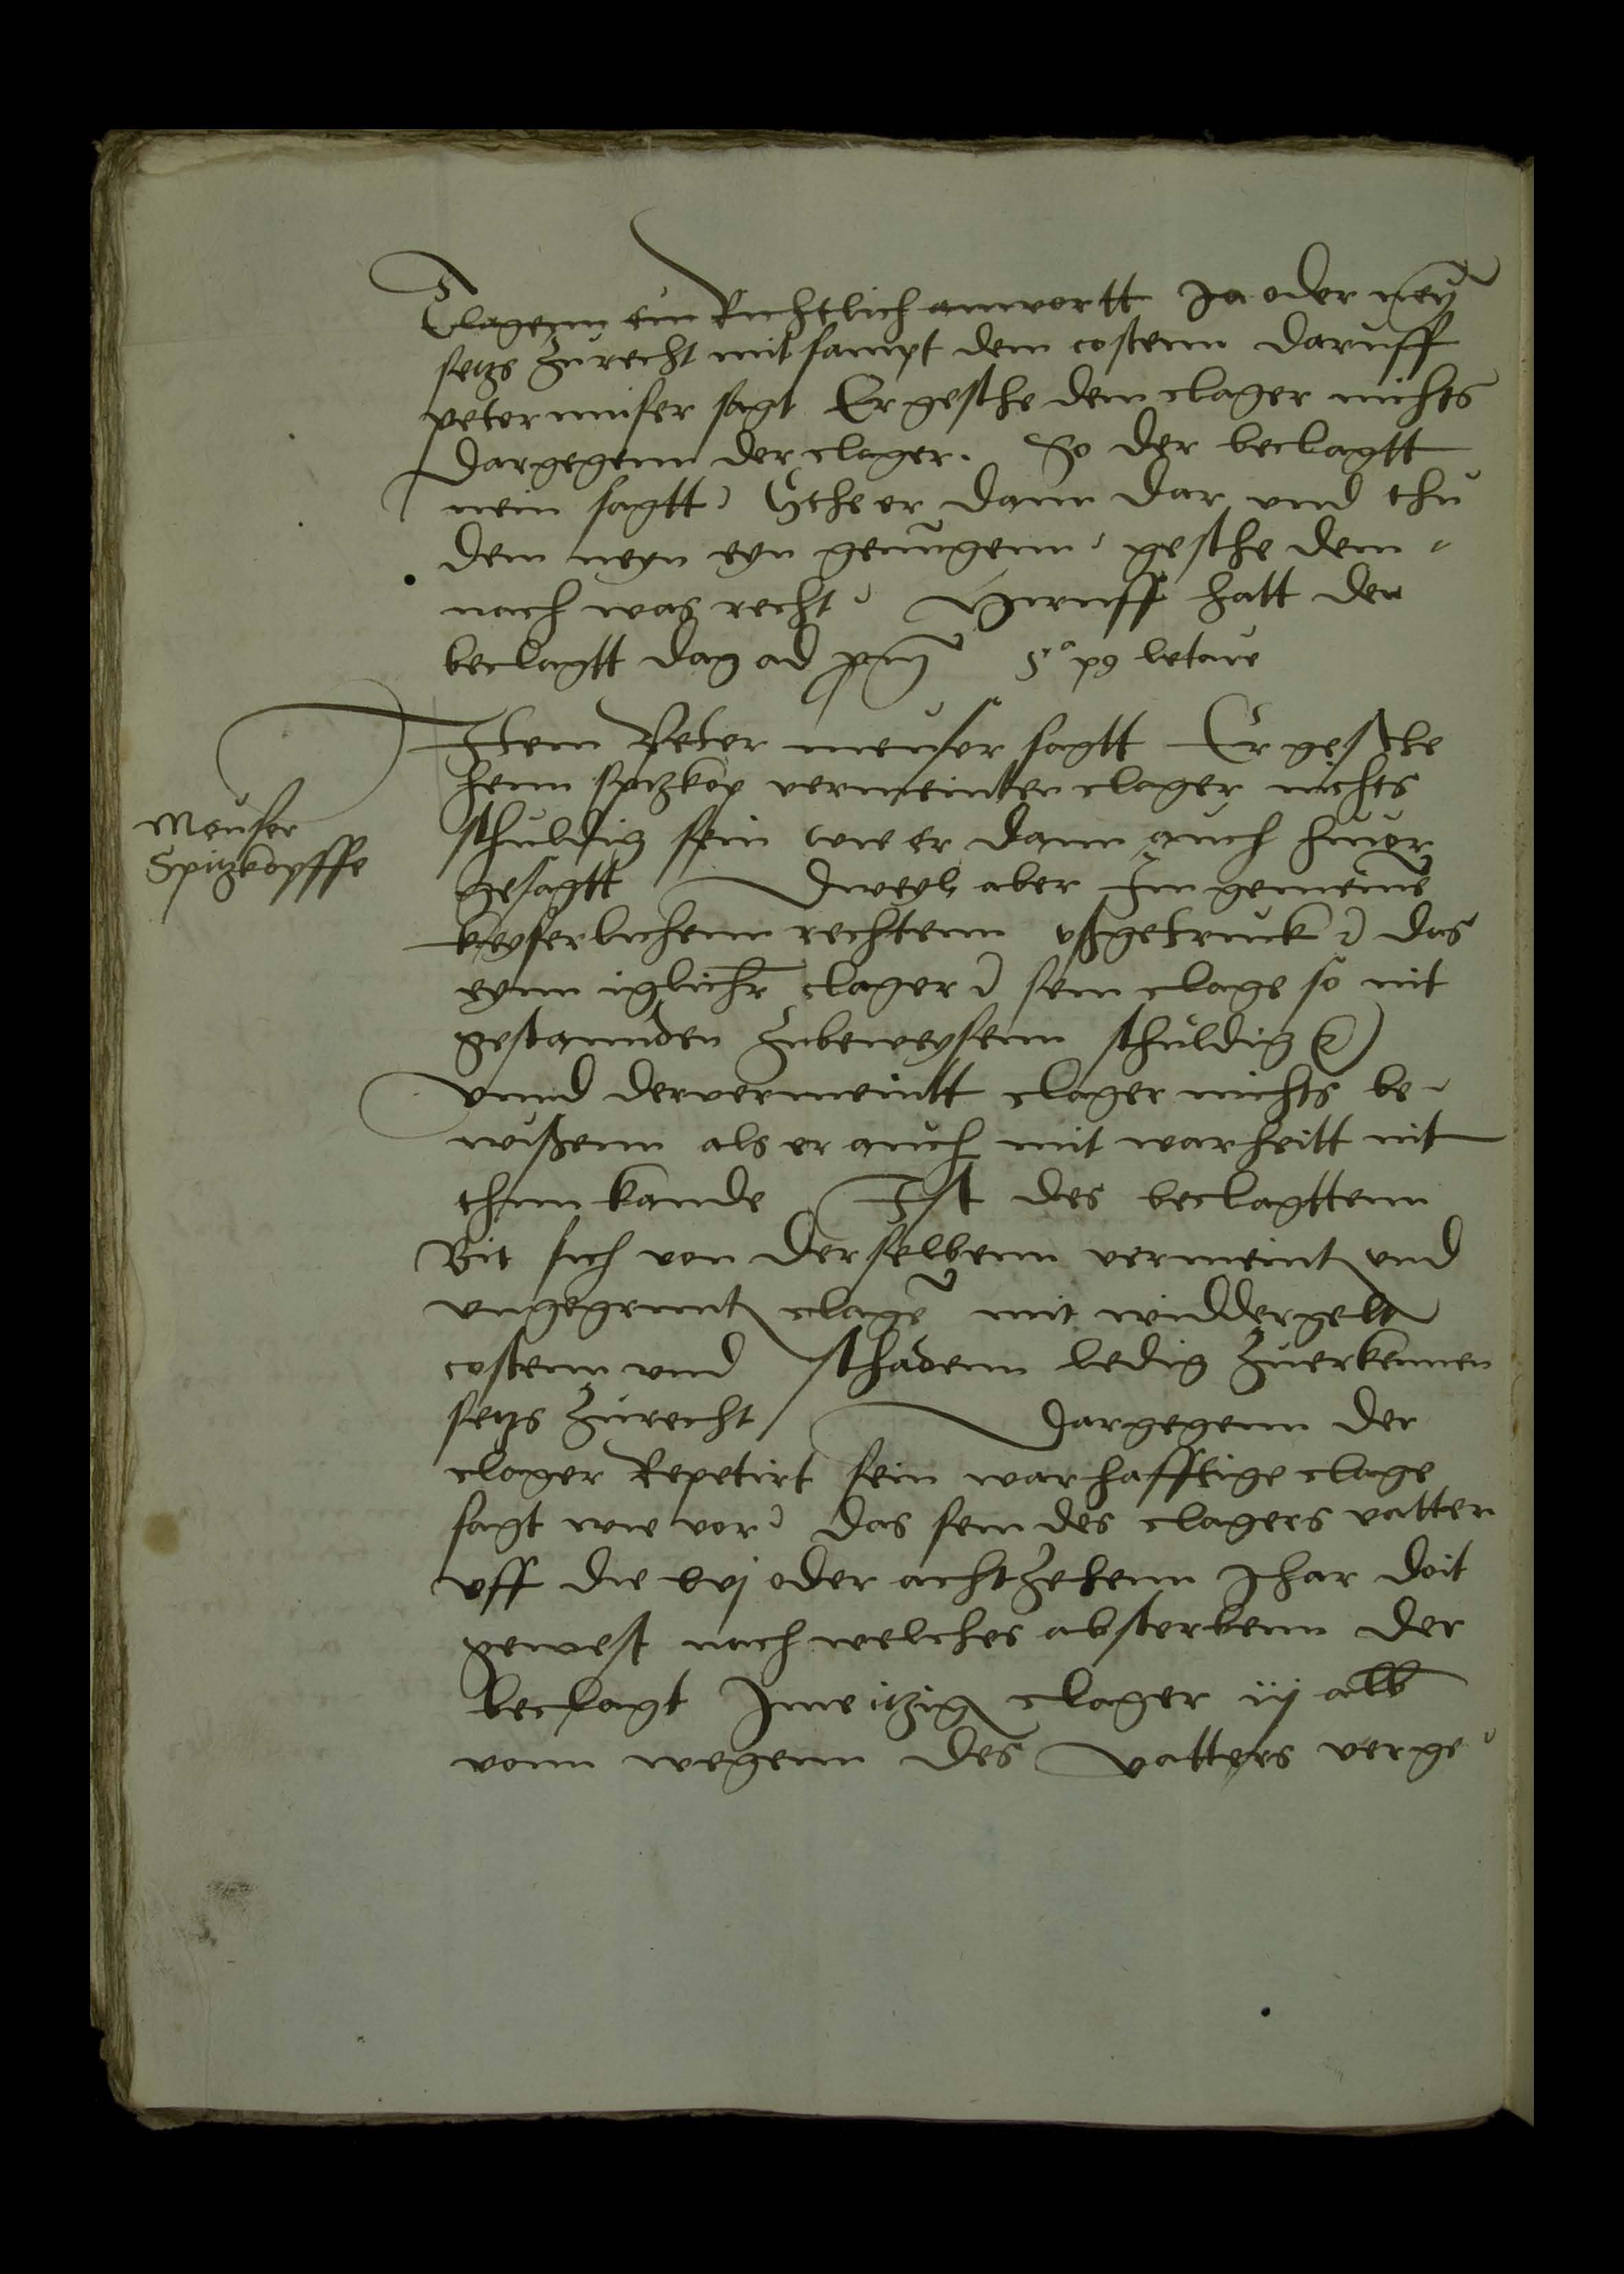 Clagenn ein Richtlich anwortt Ja oder ney
setzs zurecht mit sampt dem costenn daruff
peter muser sagt Er gesthe dem clager nichts
Dargegenn der clager. So der beclagtt
nein sagtt Gehe er dann dar vnd thu
dem neyn eyn genugenn gesthe dem
nach was recht Hiruff hatt der
beclagtt dag ad
Item Peter meuser sagtt Er gesthe
henn spitzkop vermeinten clager nichts
schuldig sein wie er dann auch hieuor
gesagtt Dweyl aber Im gemeine
keyserlichenn rechtenn vßgetruck das
eynn iglichr clager sein clage so nit
gestannden zubeweysenn schuldig
vnnd der vermeintt clager nichts be
wißenn als er auch mit warheitt nit
thun kande Ist des beclagttenn
Bit sich von derselbenn vermeint vnd
vngegrunt clage mit widdergelt
costenn vnd schadenn ledig zuerkennen
setzs zurecht Dargegenn der
clager Repetirt sein warhafftige clage
sagt wie vor das sein des clagers vatter
vff die xvij oder achtzehenn Jhar doit
gewest nach welches absterbenn der
beclagt Ime itzig clager iij alb
vonn wegenn des vatters verge
Meuser
Spitzkopffe